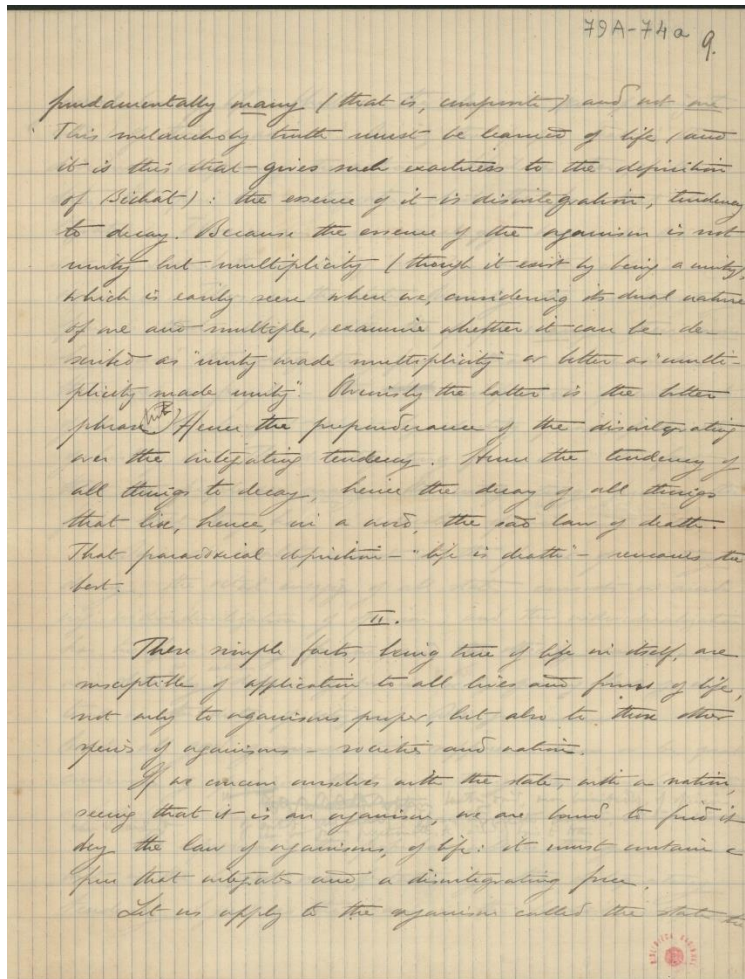 79A-74a 9.
fundamentally many (that is, composite) and not one.
This melancholy truth must be learned of life (and
it is this that gives such exactness to the definition
of Bichât): the essence of it is disintegration, tendency
to decay. Because the essence of the organism is not
unity but multiplicity (though it exist by being a unity),
which is easily seen when we, considering its dual nature
of one and multiple, examine whether it can be de-
scribed as "unity made multiplicity" or better as "multi-
plicity made unity". Obviously the latter is the better
phrase. Hence the preponderance of the disintegrating
over the integrating tendency. Hence the tendency of
all things to decay, hence the decay of all things
that live, hence, in a word, the sad law of death.
That paradoxical definition - "life is death" - remains the
best.
II.
These simple facts, being true of life in itself, are
susceptible of application to all lives and forms of life,
not only to organisms proper, but also to those other
species of organisms - societies and nation.
If we concern ourselves with the state, with a nation,
seeing that it is an organism, we are bound to find it
obey the law of organisms, of life: it must contain a
force that integrates and a disintegrating force.
Let us apply to the organism called the state the